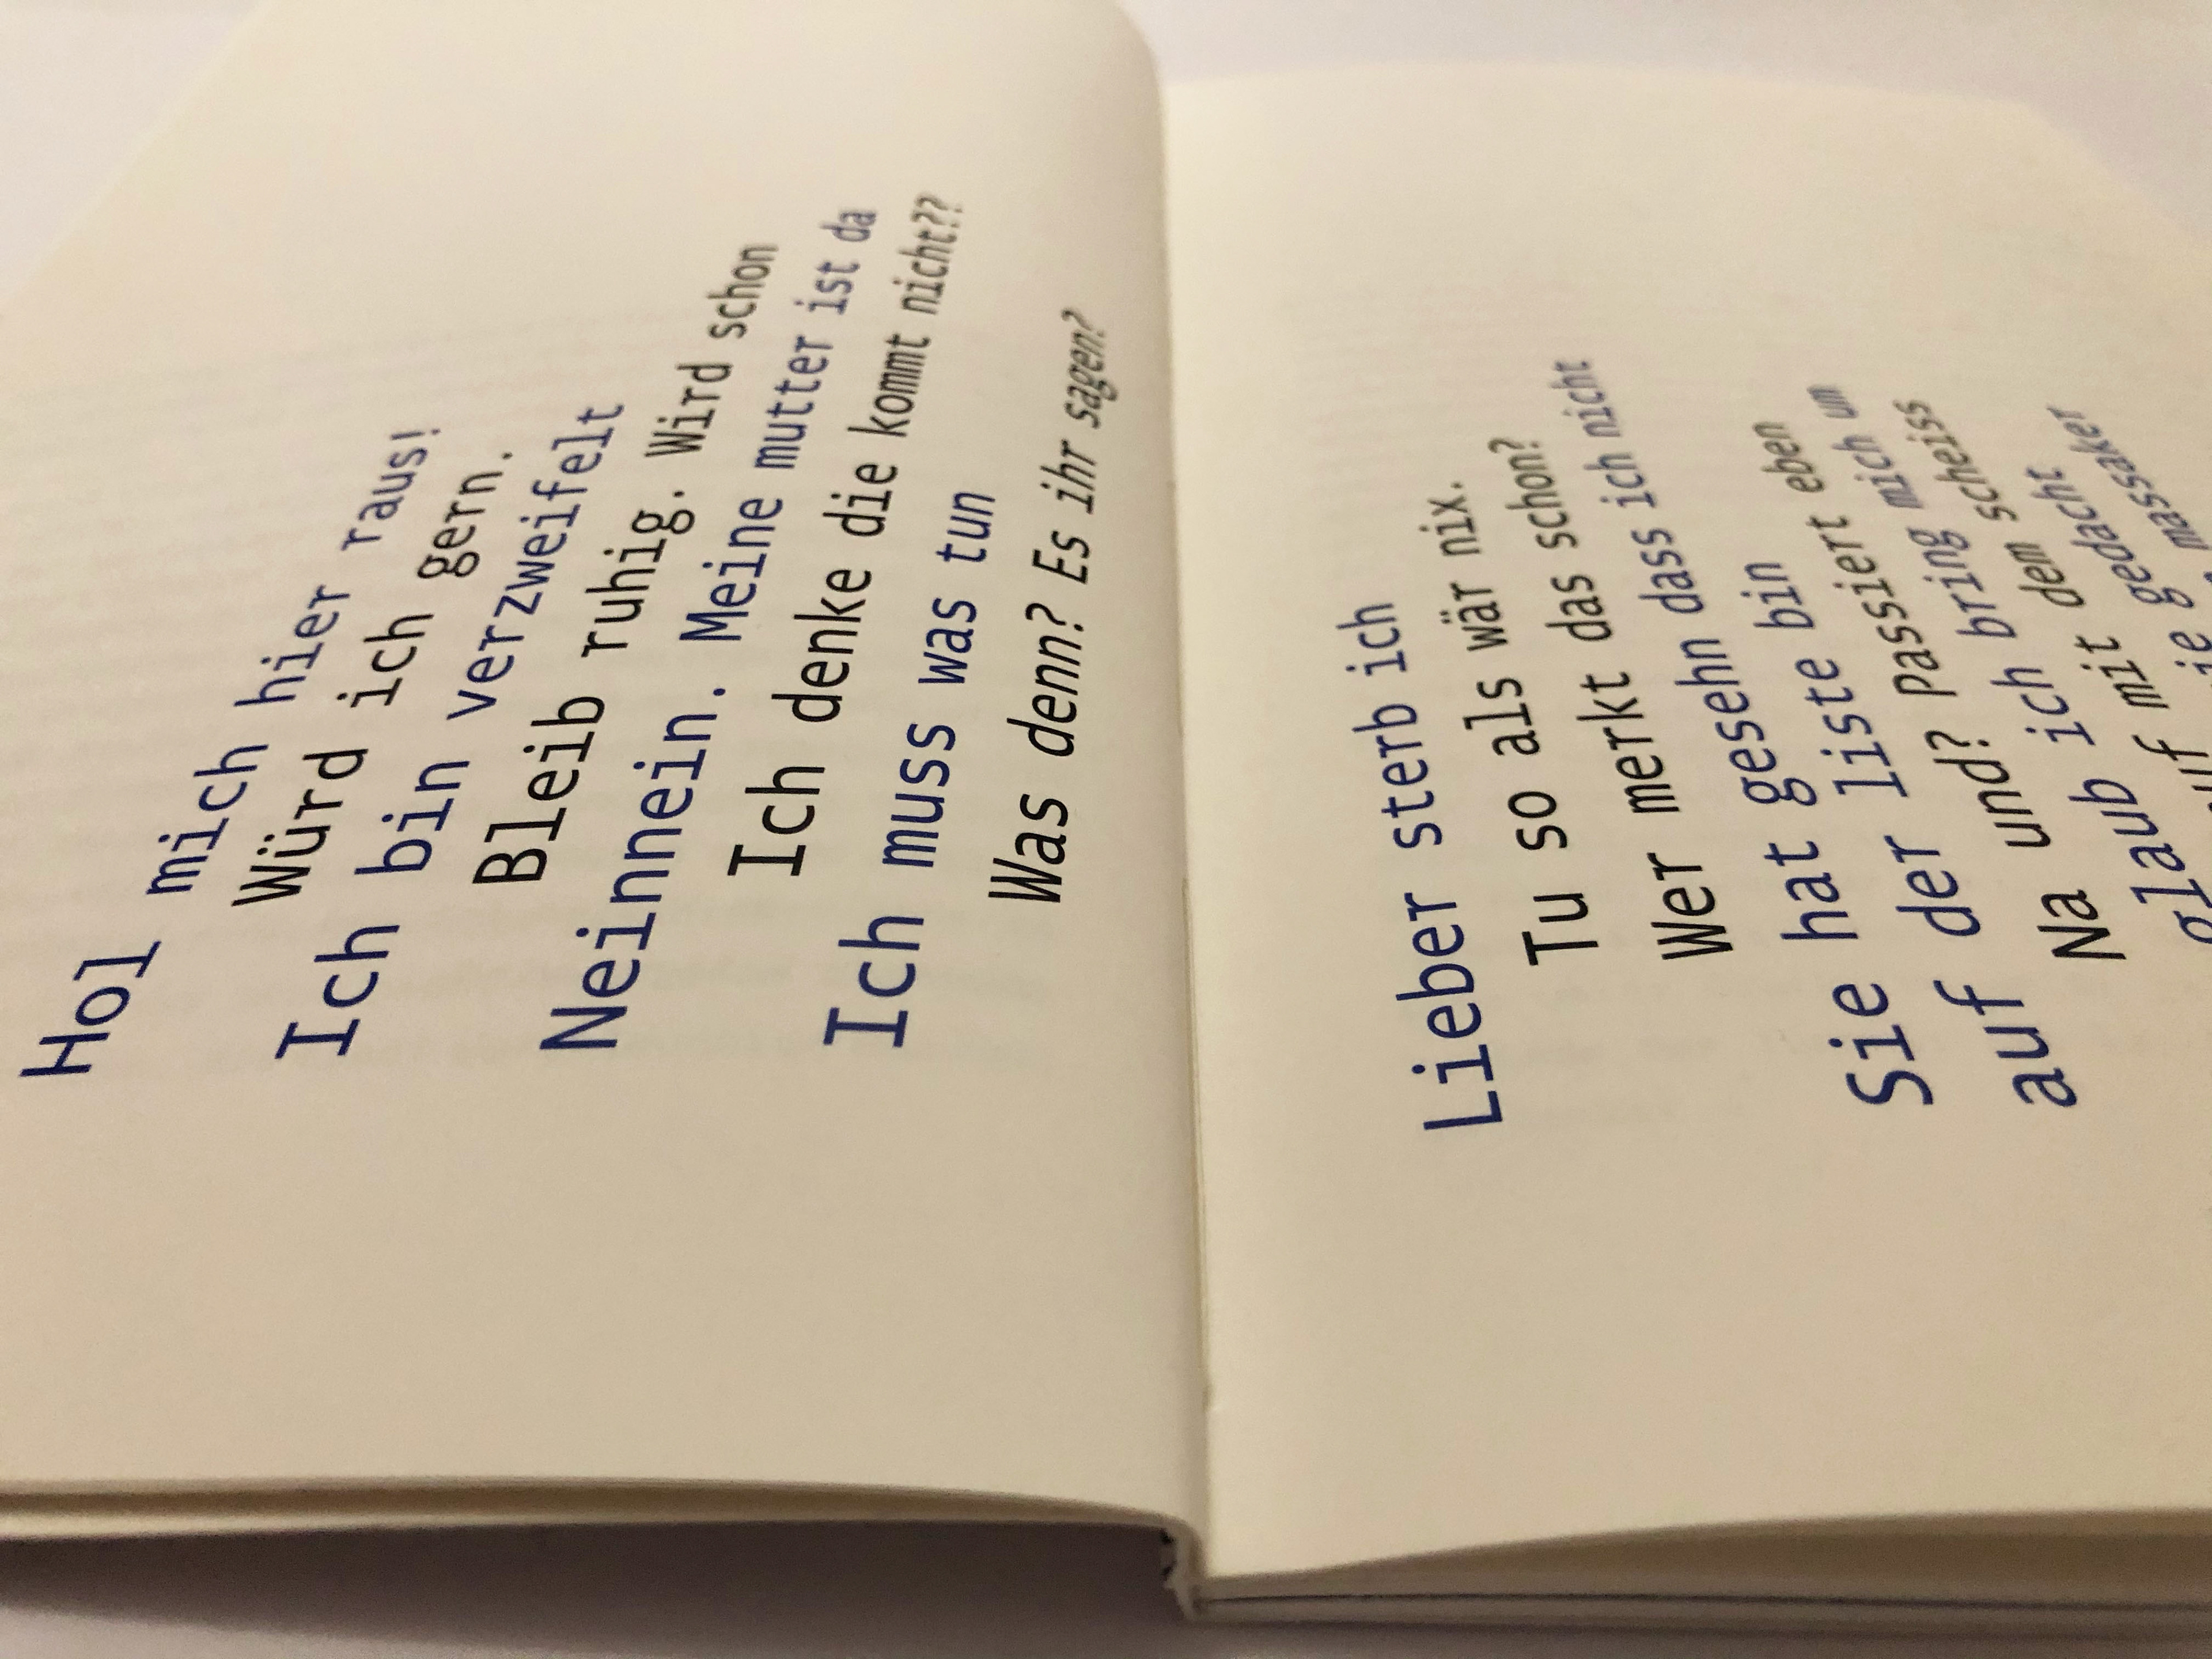 Hol mich hier raus!
Würd ich gern.
Ich bin verzweifelt
Bleib ruhig. Wird schon
Neinnein. Meine mutter ist da
Ich denke die kommt nicht??
Ich muss was tun
Was denn? Es ihr sagen?
Lieber sterb ich
Tu so als wär nix.
Wer merkt das schon?
Sie hat gesehn dass ich nicht
auf der liste bin
Passiert eben
Na und?
glaub ich bring mich um
auf mit dem scheiss
ie gedacht
g massaker